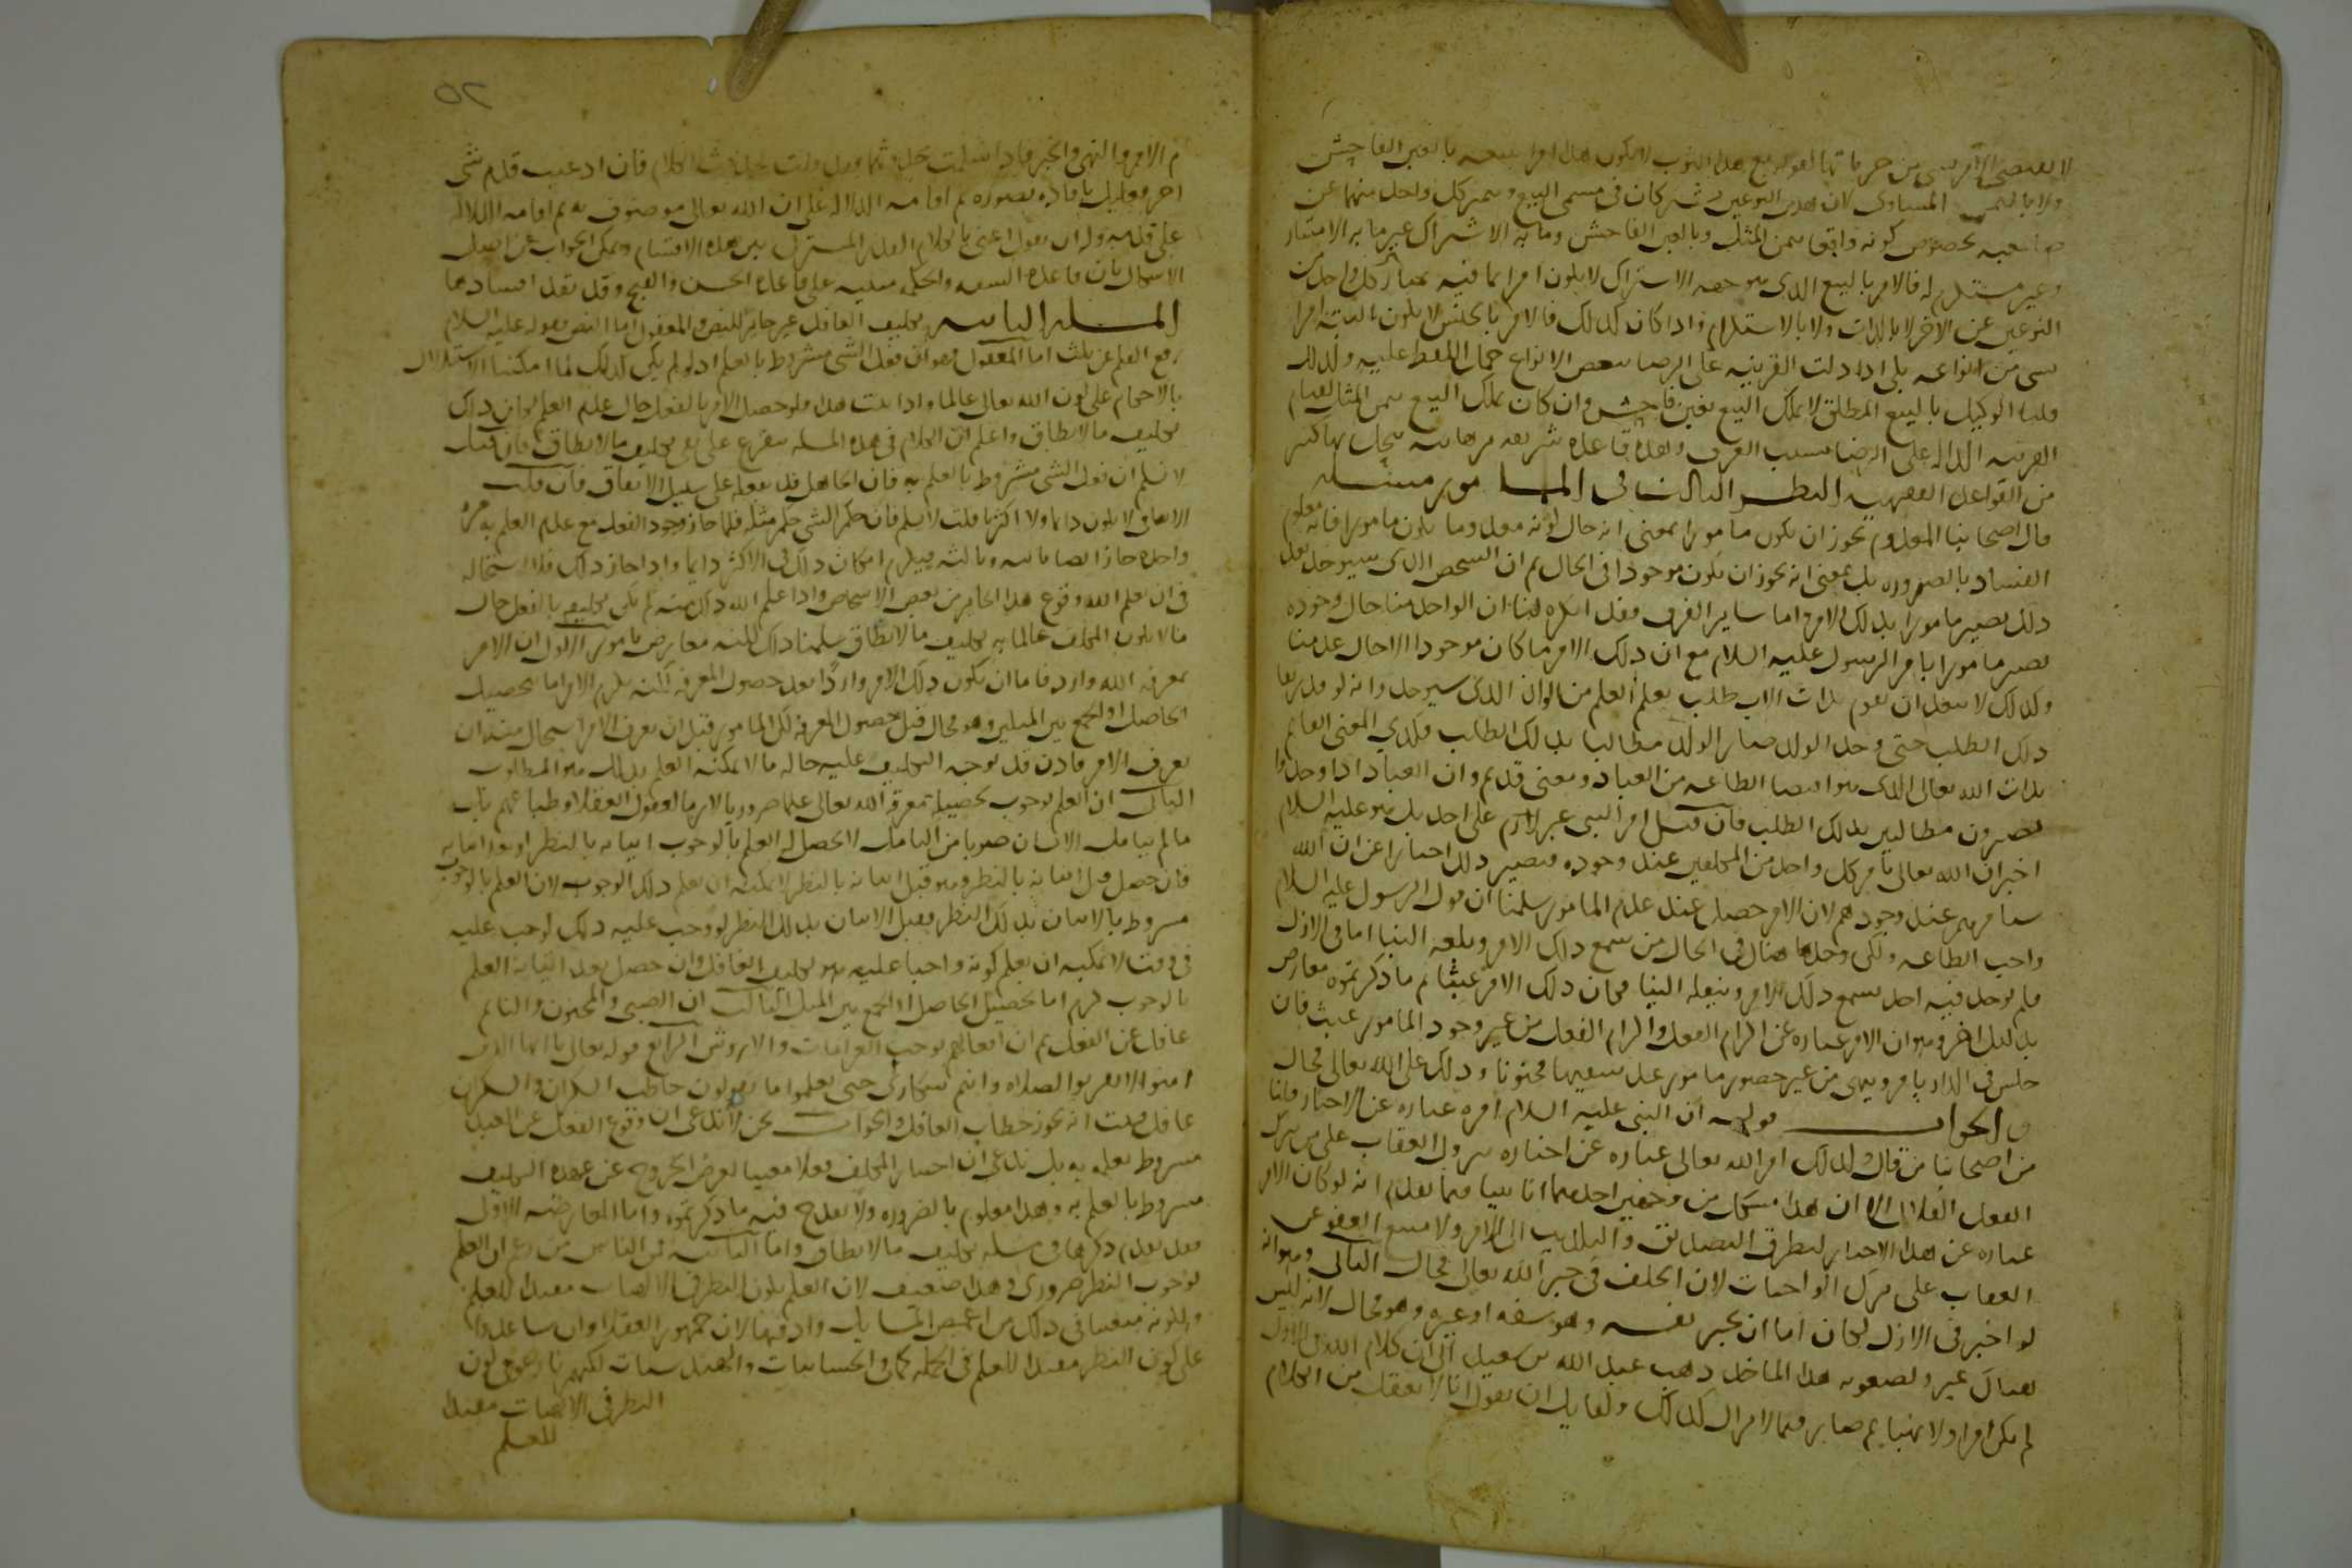 لا يقتضى الامر بشى من جزئياتها كقوله بع هذا الثوب لا يكون هذا امرا ببيعه بالغبن الفاحش
ولا بالثمن المساوى لان هذين النوعين يشتركان فى مسمى البيع ويتميز كل واحد منهما عن
صاحبه بخصوص كونه واقعا بثمن المثل وبالغبن الفاحش وما به الاشتراك غير ما به الامتياز
وغير مستلزم له فالامر بالبيع الذى هو جهة الاشتراك لا يكون امرا بما فيه يمتاز كل واحد من
النوعين عن الاخر لا بالذات ولا بالاستلزام واذا كان كذلك فالامر بالجنس لا يكون البتة امرا
بشى من انواعه بلى اذا دلت القرينة على الرضا ببعض الانواع حمل اللفظ عليه ولذلك
قلنا الوكيل بالبيع المطلق لا يملك البيع بغبن فاحش وان كان يملك البيع بثمن المثل لقيام
القرينة الدالة على الرضا بسبب العرف وهذه قاعدة شريفة برهانية ينحل بها كثير
من القواعد الفقهية النظر الثالث فى المامور مسئلة
قال اصحابنا المعدوم يجوز ان يكون مامورا لا بمعنى انه حال كونه معدوما يكون مامورا فانه معلوم
الفساد بالضرورة بل بمعنى انه يجوز ان يكون موجودا فى الحال ثم ان الشخص الذى سيوجد بعد
ذلك يصير مامورا بذلك الامر واما ساير الفرق فقد انكره لنا ان الواحد منا حال وجوده
يصير مامورا بامر الرسول عليه السلام مع ان ذلك الامر ما كان موجودا الا حال عدمنا
وكذلك لا يبعد ان يقوم بذات الاب طلب تعلم العلم من الولد الذى سيوجد وانه لو قدر بقا
ذلك الطلب حتى وجد الولد صار الولد مطالبا بذلك الطلب فكذى المعنى القايم
بذات الله تعالى الذى هو اقتضا الطاعة من العباد ومعنى قديم وان العباد اذا وجدوا
يصيرون مطالبين بذلك الطلب فان قيل امر النبى غير لازم على احد بل هو عليه السلام
اخبر ان الله تعالى يامر كل واحد من المكلفين عند وجوده فيصير ذلك اخبارا عن ان الله
سيامرهم عند وجودهم لان الامر حصل عند عدم المامور سلمنا ان قول الرسول عليه السلام
واجب الطاعة ولكن وجد هناك فى الحال من سمع ذلك الامر وبلغه الينا اما فى الازل
فلم يوجد فيه احد يسمع ذلك الامر وينقله الينا فكان ذلك الامر عبثا ثم ما ذكرتموه معارض
بدليل اخر وهو ان الامر عبارة عن الزام الفعل والزام الفعل من غير وجود المامور عبث فان
جلس فى الدار يامر وينهى من غير حضور مامور عد سفيها مجنونا وذلك على الله تعالى محال
والجواب قوله ان النبى عليه السلام امره عبارة عن الاخبار قلنا
من اصحابنا من قال كذلك امر الله تعالى عبارة عن اخباره بنزول العقاب على من يترك
الفعل الفلانى الا ان هذا مشكل من وجهين احدهما انا بينا فيما تقدم انه لو كان الامر
عبارة عن هذا الاخبار لتطرق التصديق والتكذيب الى الامر ولا متنع العفو عن
العقاب على ترك الواجبات لان الخلف فى خبر الله تعالى محال الثانى وهو انه
لو اخبر فى الازل لكان اما ان يخبر نفسه وهو سفه او غيره وهو محال لانه ليس
هناك غير ولصعوبة هذا الماخذ ذهب عبد الله بن سعيد الى ان كلام الله فى الازل
لم يكن امرا ولا نهيا ثم صار فيما لا يزال كذلك ولقايل ان يقول انا لا نعقل من الكلام
٥٢
م الامر والنهى والخبر فاذا سلمت حدوثها فقد قلت بحدوث الكلام فان ادعيت قدم شى
اخر فعليك بافادة تصوره ثم اقامة الدلالة على ان الله تعالى موصوف به ثم اقامة الدلالة
على قدمه وله ان يقول اعنى بالكلام القدر المشترك بين هذه الاقسام ويمكن الجواب عن اصل
الاشكال بان قاعدة السفه والحكمة مبنية على قاعدة الحسن والقبح وقد تقدم افسادها
المسئلة الثانية تكليف الغافل غير جايز للنص والمعقول اما النص فقوله عليه السلام
رفع القلم عن ثلث اما المعقول فهو ان فعل الشى مشروط بالعلم اذ لو لم يكن كذلك لما امكننا الاستدلال
بالاحكام على كون الله تعالى عالما واذا ثبت هذا فلو حصل الامر بالفعل حال عدم العلم لكان ذلك
تكليف ما لا يطاق واعلم ان الكلام فى هذه المسئلة يتفرع على نفى تكليف ما لا يطاق فان قيل
لا نسلم ان فعل الشى مشروط بالعلم به فان الجاهل قد يفعله على سبيل الاتفاق فان قلت
الاتفاق لا يكون دايما ولا اكثريا قلت لا نسلم فان حكم الشى حكم مثله فلما جاز وجود الفعل مع عدم العلم به مرة
واحدة جاز ايضا ثانية وثالثة فيلزم امكان ذلك فى الاكثر دايما واذا جاز ذلك فلا استحالة
فى ان يعلم الله وقوع هذا الجايز من بعض الاشخاص واذا علم الله ذلك منه لم يكن تكليفه بالفعل حال
ما لا يكون المكلف عالما به تكليف ما لا يطاق سلمنا ذلك لكنه معارض بامور الاول ان الامر
بمعرفة الله وارد فاما ان يكون ذلك الامر واردا بعد حصول المعرفة لكنه يلزم الامر اما بتحصيل
الحاصل او الجمع بين المثلين وهو محال قبل حصول المعرفة لكن المامور قبل ان يعرف الامر استحال منه ان
يعرف الامر فاذن قد توجه التكليف عليه حالة ما لا يمكنه العلم بذلك وهو المطلوب
الثانى ان العلم بوجوب تحصيل معرفة الله تعالى ليس علما ضروريا لازما لعقول العقلا وطباعهم بل
ما لم يتامل الانسان ضربا من التامل لا يحصل له العلم بالوجوب اتيانه بالنظر او بعد اتيانه
فان حصل قبل اتيانه بالنظر وهو قبل اتيانه بالنظر لا يمكنه ان يعلم ذلك الوجوب لان العلم بالوجوب
مشروط بالاتيان بذلك النظر فقبل الاتيان بذلك النظر لو وجب عليه ذلك لوجب عليه
فى وقت لا يمكنه ان يعلم كونه واجبا عليه وهو تكليف الغافل وان حصل بعد اتيانه العلم
بالوجوب لزم اما تحصيل الحاصل او الجمع بين المثلين الثالث ان الصبى والمجنون والنايم
غافل عن الفعل ثم ان افعالهم توجب الغرامات والاروش الرابع قوله تعالى يا ايها الذين
امنوا لا تقربوا الصلاة وانتم سكارى حتى تعلموا ما تقولون خاطب السكران والسكران
غافل فثبت انه يجوز خطاب الغافل والجواب نحن لا ندعى ان وقوع الفعل عن العبد
مشروط بعلمه به بل ندعى ان اختيار المكلف فعلا معينا لغرض الخروج عن عهدة التكليف
مشروط بالعلم به وهذا معلوم بالضرورة ولا يقدح فيه ما ذكرتموه واما المعارضة الاول
فقد تقدم ذكرها فى مسئلة تكليف ما لا يطاق واما الثانية فمن الناس من زعم ان العلم
بوجوب النظر ضرورى وهذا ضعيف لان العلم بكون النظر فى الالهيات مفيدا للعلم
وبكونه متعينا فى ذلك من اغمض المسايل وادقها لان جمهور العقلا وان ساعدوا
على كون النظر مفيدا للعلم فى الجملة كما فى الحسابيات والهندسيات لكنهم نازعوا فى كون
النظر فى الالهيات مفيدا
للعلم